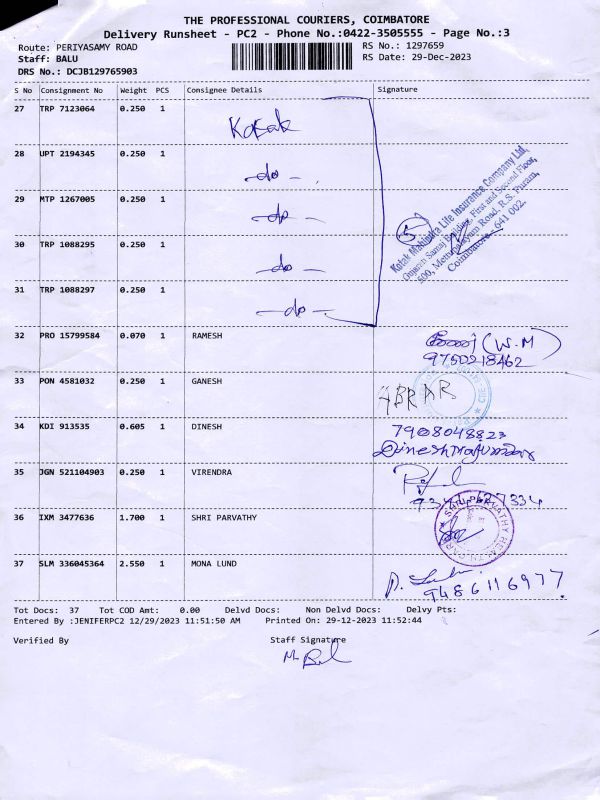 THE PROFESSIONAL COURIERS, COIMBATORE
Delivery Runsheet - PC2 - Phone No.:0422-3505555 - Page No.:3
Route: PERIYASAMY ROAD RS No.: 1297659
Staff: BALU RS Date: 29-Dec-2023
DRS No.: DCJB129765903
S No Consignment No Weight PCS Consignee Details Signature
27 TRP 7123064 0.250 1 Kotak
28 UPT 2194345 0.250 1 -do-
29 MTP 1267005 0.250 1 -do-
30 TRP 1088295 0.250 1 -do-
31 TRP 1088297 0.250 1 -do-
5
Kotak Mahindra Life Insurance Company Ltd,
Gujarati Samaj Building, First and Second Floor,
500, Mettupalayam Road, R.S. Puram,
Coimbatore - 641 002.
32 PRO 15799584 0.070 1 RAMESH (W.M)
9750218462
33 PON 4581032 0.250 1 GANESH ABRAR
34 KDI 913535 0.605 1 DINESH 7908048823
35 JGN 521104903 0.250 1 VIRENDRA
36 IXM 3477636 1.700 1 SHRI PARVATHY
37 SLM 336045364 2.550 1 MONA LUND
9486116977
Tot Docs: 37 Tot COD Amt: 0.00 Delvd Docs: Non Delvd Docs: Delvy Pts:
Entered By :JENIFERPC2 12/29/2023 11:51:50 AM Printed On: 29-12-2023 11:52:44
Verified By Staff Signature